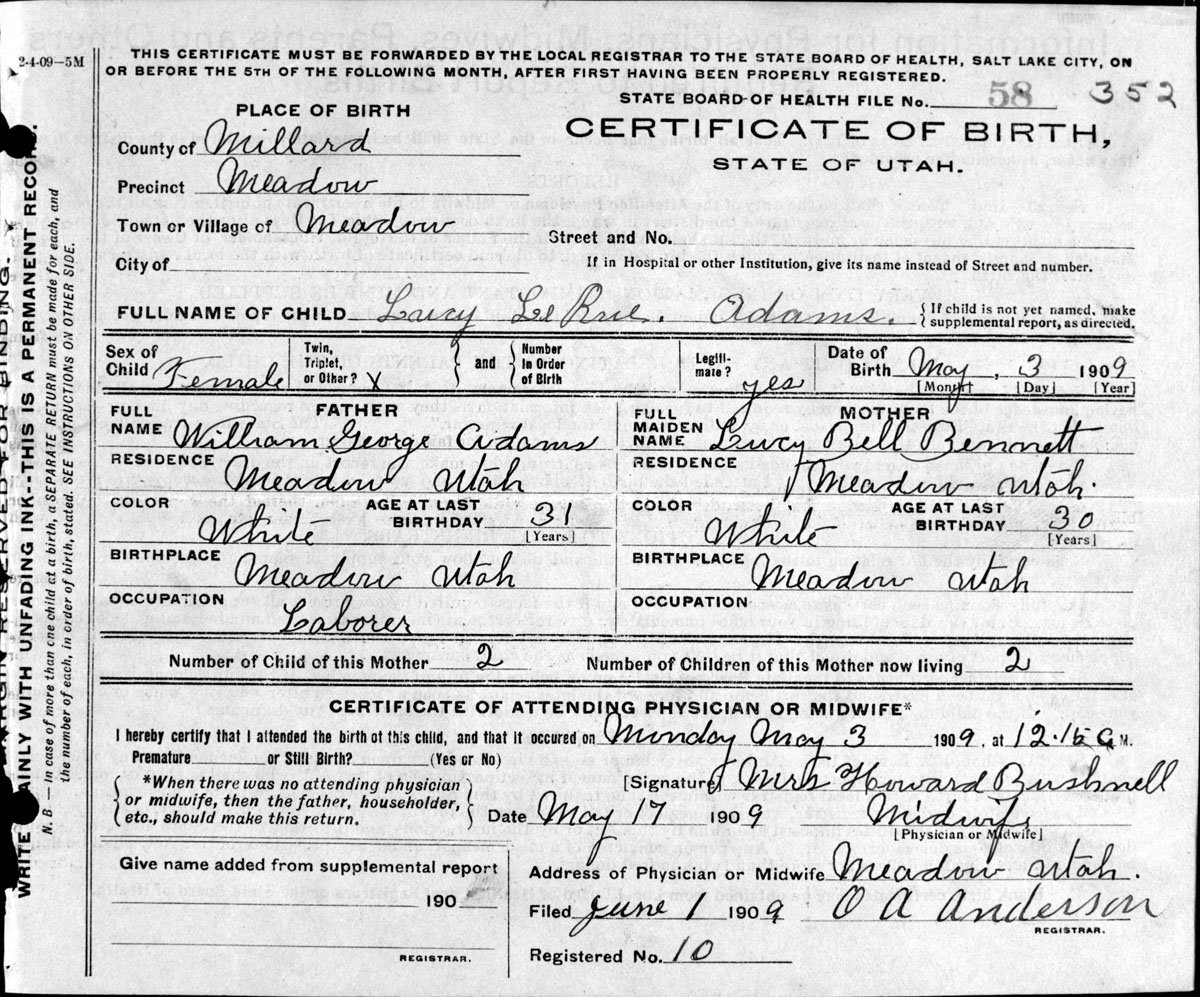 2-4-09-5M
THIS CERTIFICATE MUST BE FORWARDED BY THE LOCAL REGISTRAR TO THE STATE BOARD OF HEALTH, SALT LAKE CITY, ON
OR BEFORE THE 5TH OF THE FOLLOWING MONTH, AFTER FIRST HAVING BEEN PROPERLY REGISTERED.
STATE BOARD OF HEALTH FILE No. 58 352
CERTIFICATE OF BIRTH,
STATE OF UTAH.
PLACE OF BIRTH
County of Millard
Precinct Meadow
Town or Village of Meadow
Street and No.
City of
If in Hospital or other Institution, give its name instead of Street and number.
FULL NAME OF CHILD Lucy La Rue. Adams. {If child is not yet named, make
supplemental report, as directed.
Sex of Child Female
Twin, Triplet, or Other? X
and
Number in Order of Birth
Legiti-mate? yes
Date of Birth May, 3 1909
[Month] [Day] [Year]
FATHER
FULL NAME William George Adams
RESIDENCE Meadow Utah
COLOR White AGE AT LAST BIRTHDAY 31
[Years]
BIRTHPLACE Meadow Utah
OCCUPATION Laborer
MOTHER
FULL MAIDEN NAME Lucy Bell Bennett
RESIDENCE Meadow Utah.
COLOR White AGE AT LAST BIRTHDAY 30
[Years]
BIRTHPLACE Meadow Utah
OCCUPATION
Number of Child of this Mother 2 Number of Children of this Mother now living 2
CERTIFICATE OF ATTENDING PHYSICIAN OR MIDWIFE*
I hereby certify that I attended the birth of this child, and that it occured on Monday May 3 1909, at 12.15 A M.
Premature or Still Birth? (Yes or No)
*When there was no attending physician
or midwife, then the father, householder,
etc., should make this return.
[Signature] Mrs Howard Bushnell
Date May 17 1909 Midwife
[Physician or Midwife]
Give name added from supplemental report
190
REGISTRAR.
Address of Physician or Midwife Meadow Utah.
Filed June 1 1909 O A Anderson
REGISTRAR.
Registered No. 10
RESERVED FOR BINDING.
WRITE PLAINLY WITH UNFADING INK--THIS IS A PERMANENT RECORD.
N. B.—In case of more than one child at a birth, a SEPARATE RETURN must be made for each, and
the number of each, in order of birth, stated. SEE INSTRUCTIONS ON OTHER SIDE.